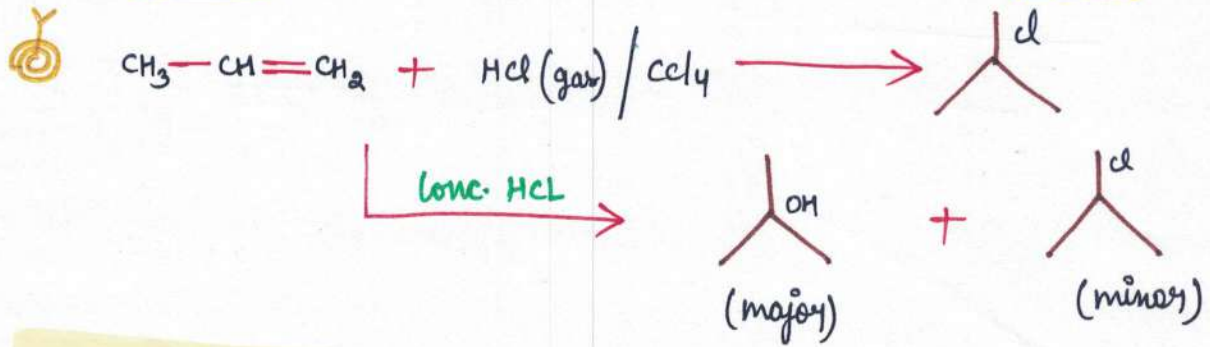 CH₃—CH=CH₂ + HCl (gas) / CCl₄ → Cl
Conc. HCL
OH + Cl
(major) (minor)